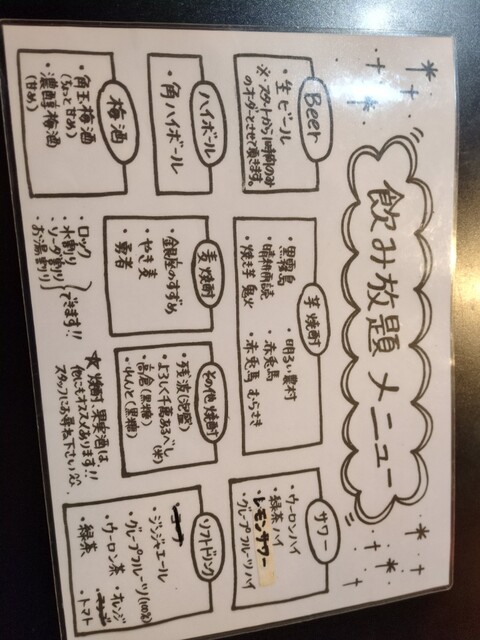 飲み放題 メニュー
Beer
・生ビール
※スタートから1時間のみ
のオーダーとさせて頂きます。
ハイボール
・角ハイボール
梅酒
・角玉梅酒
(ちょっと甘め)
・濃醇梅酒
(甘め)
芋焼酎
・黒霧島
・明るい農村
・晴耕雨読
・赤兎馬
・焼き芋 鬼火
・赤兎馬 むらさき
麦焼酎
・銀座のすずめ
・やき麦
・勇者
・ロック
・水割り
・ソーダ割り
・お湯割り
できます!!
サワー
・ウーロンハイ
・緑茶ハイ
・レモンサワー
・グレープフルーツハイ
その他焼酎
・残波(泡盛)
・よろしく千萬あるべし
(米)
・高倉(黒糖)
・れんと(黒糖)
★焼酎、果実酒は、
他にもオススメあります!!
スタッフにお尋ね下さい
ソフトドリンク
・コーラ
・ジンジャエール
・グレープフルーツ(100%)
・ウーロン茶
・オレンジ
・緑茶
・トマト